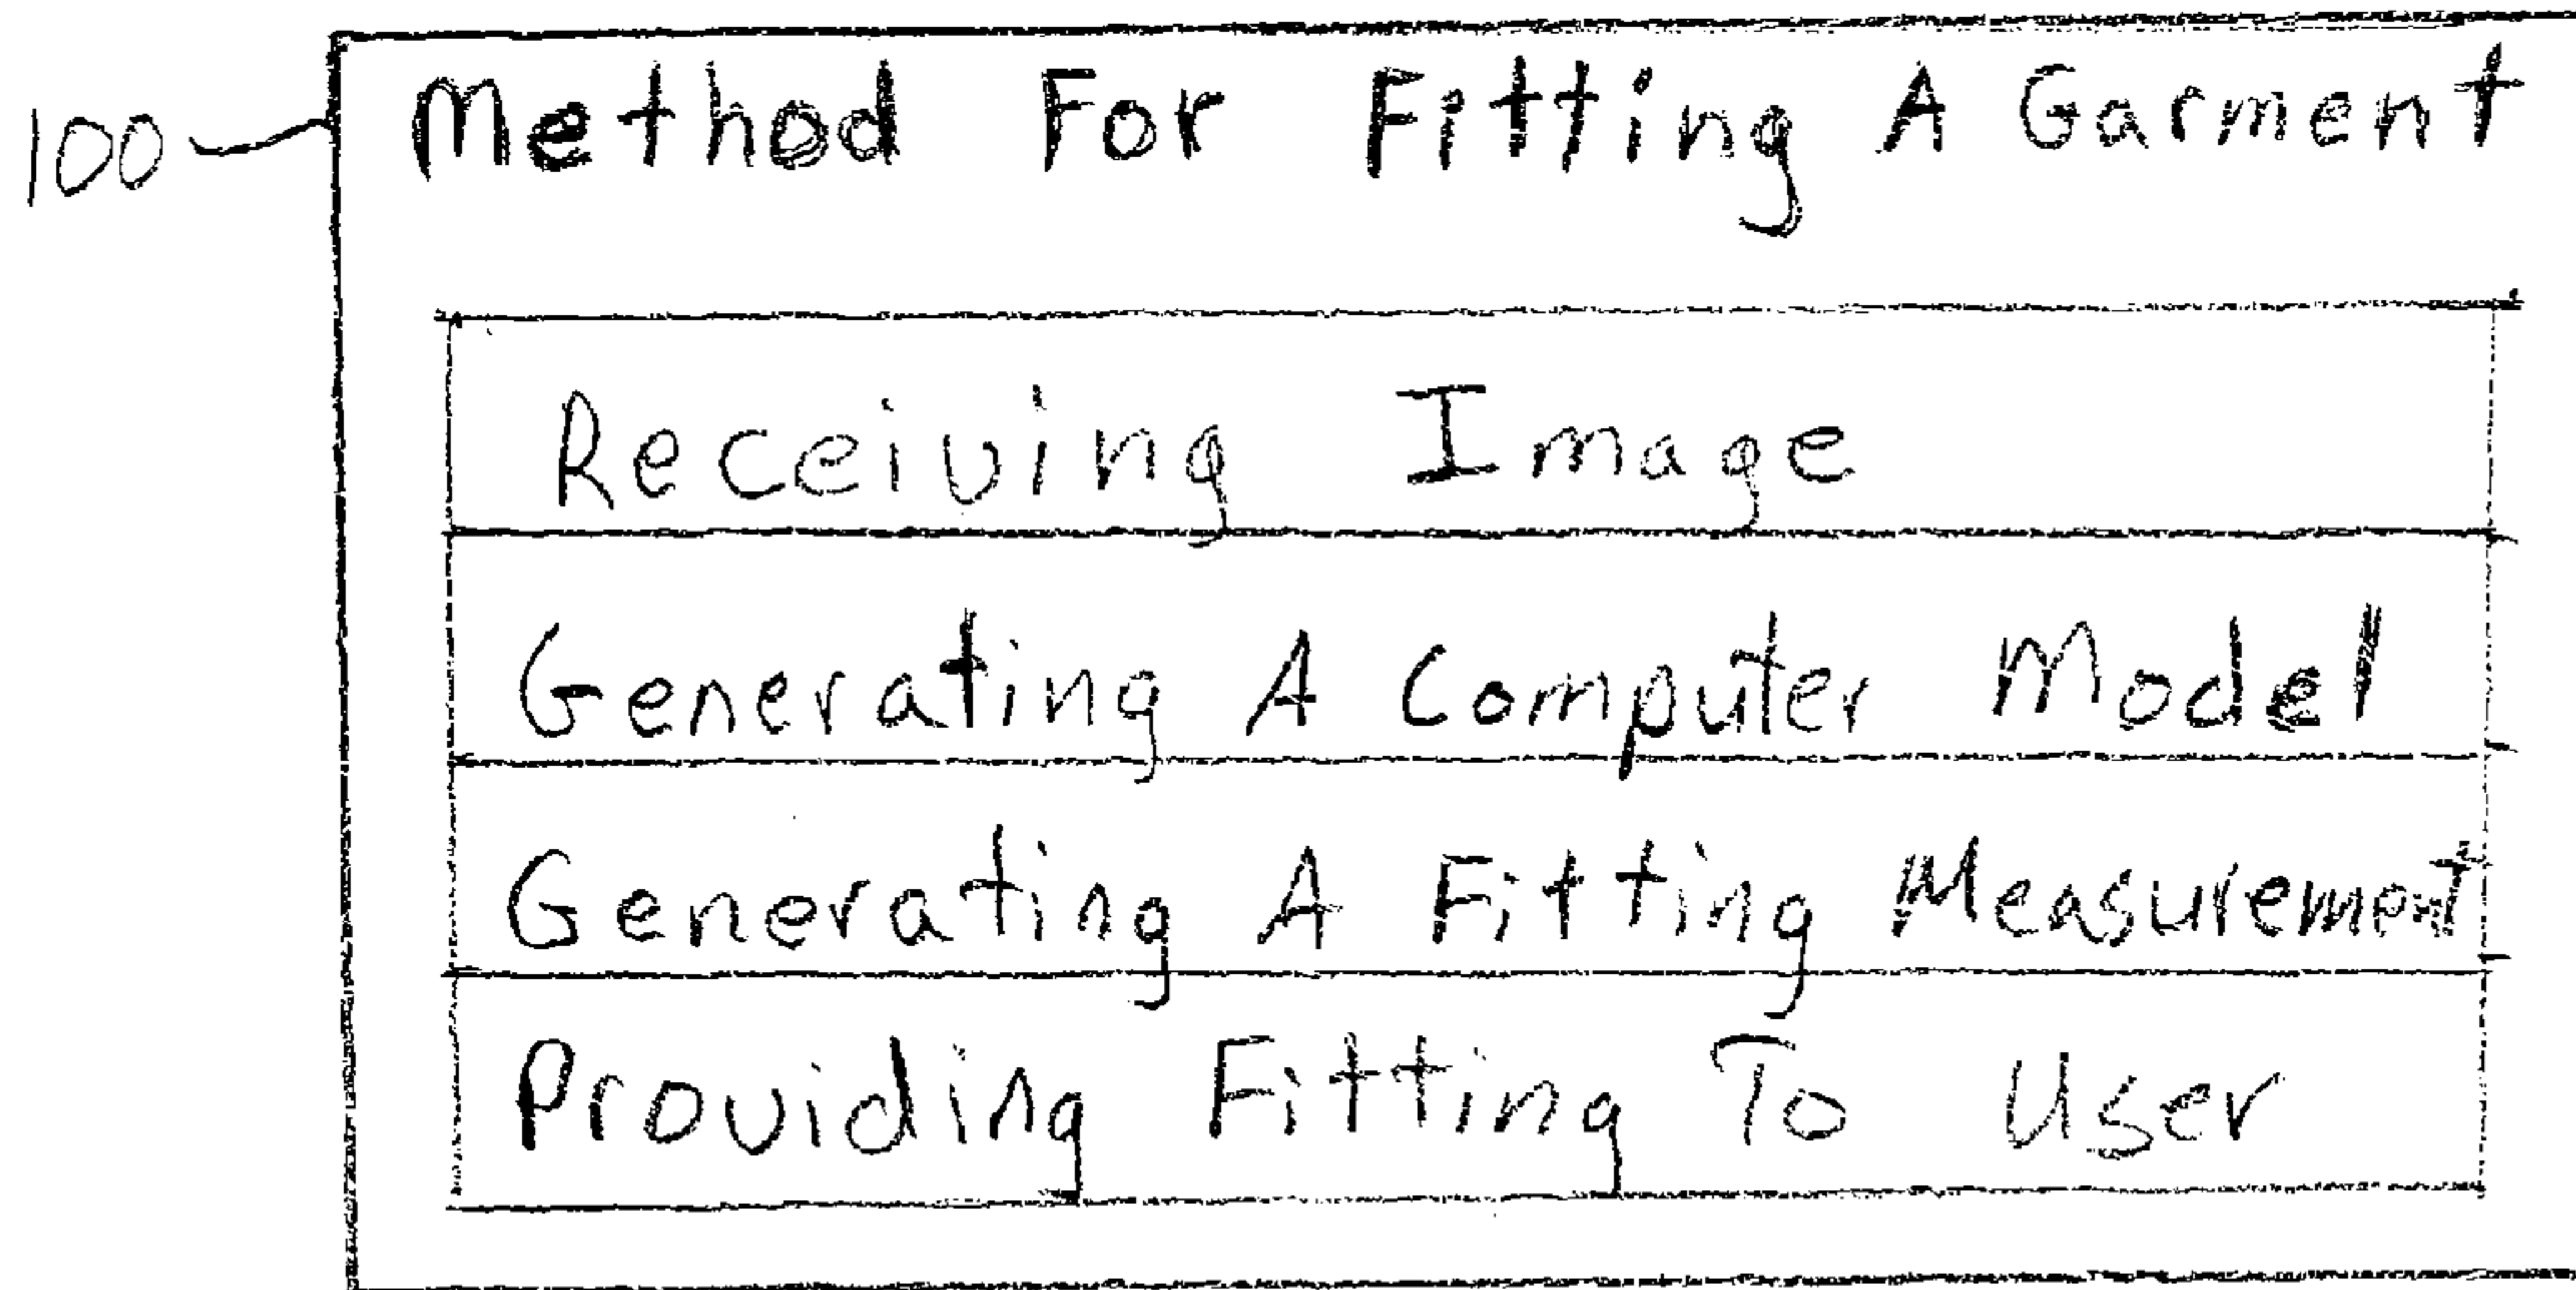 100 Method For Fitting A Garment
Receiving Image
Generating A Computer Model
Generating A Fitting Measurement
Providing Fitting To User